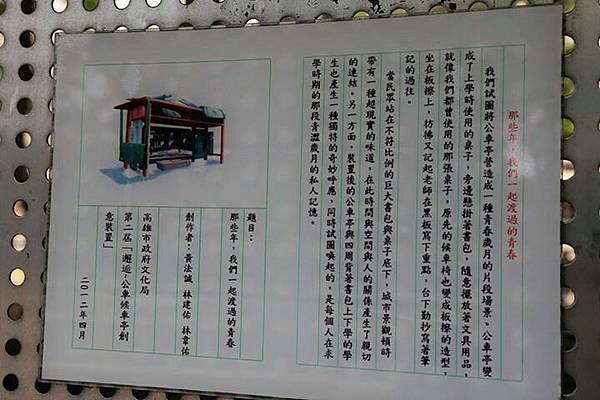 那些年，我們一起渡過的青春
我們試圖將公車亭營造成一種青春歲月的片段場景。公車亭變
成了上學時使用的桌子，旁邊懸掛著書包，隨意擺放著文具用品，
就像我們都曾使用的那張桌子。原先的候車椅也變成板擦的造型，
坐在板擦上，彷彿又記起老師在黑板寫下重點，台下勤抄寫著筆
記的過往。
當民眾站在不符比例的巨大書包與桌子底下，城市景觀頓時
帶有一種超現實的味道，在此時間與空間與人的關係產生了親切
的連結。另一方面，裝置後的公車亭與四周背著書包上下學的學
生也產生一種獨特的奇妙呼應，同時試圖喚起的，是每個人在求
學時期的那段青澀歲月的私人記憶。
題目：
那些年，我們一起渡過的青春
創作者：黃法誠 林建佑 林韋佑
高雄市政府文化局
第二屆「邂逅，公車候車亭創
意裝置」
二〇一二年四月